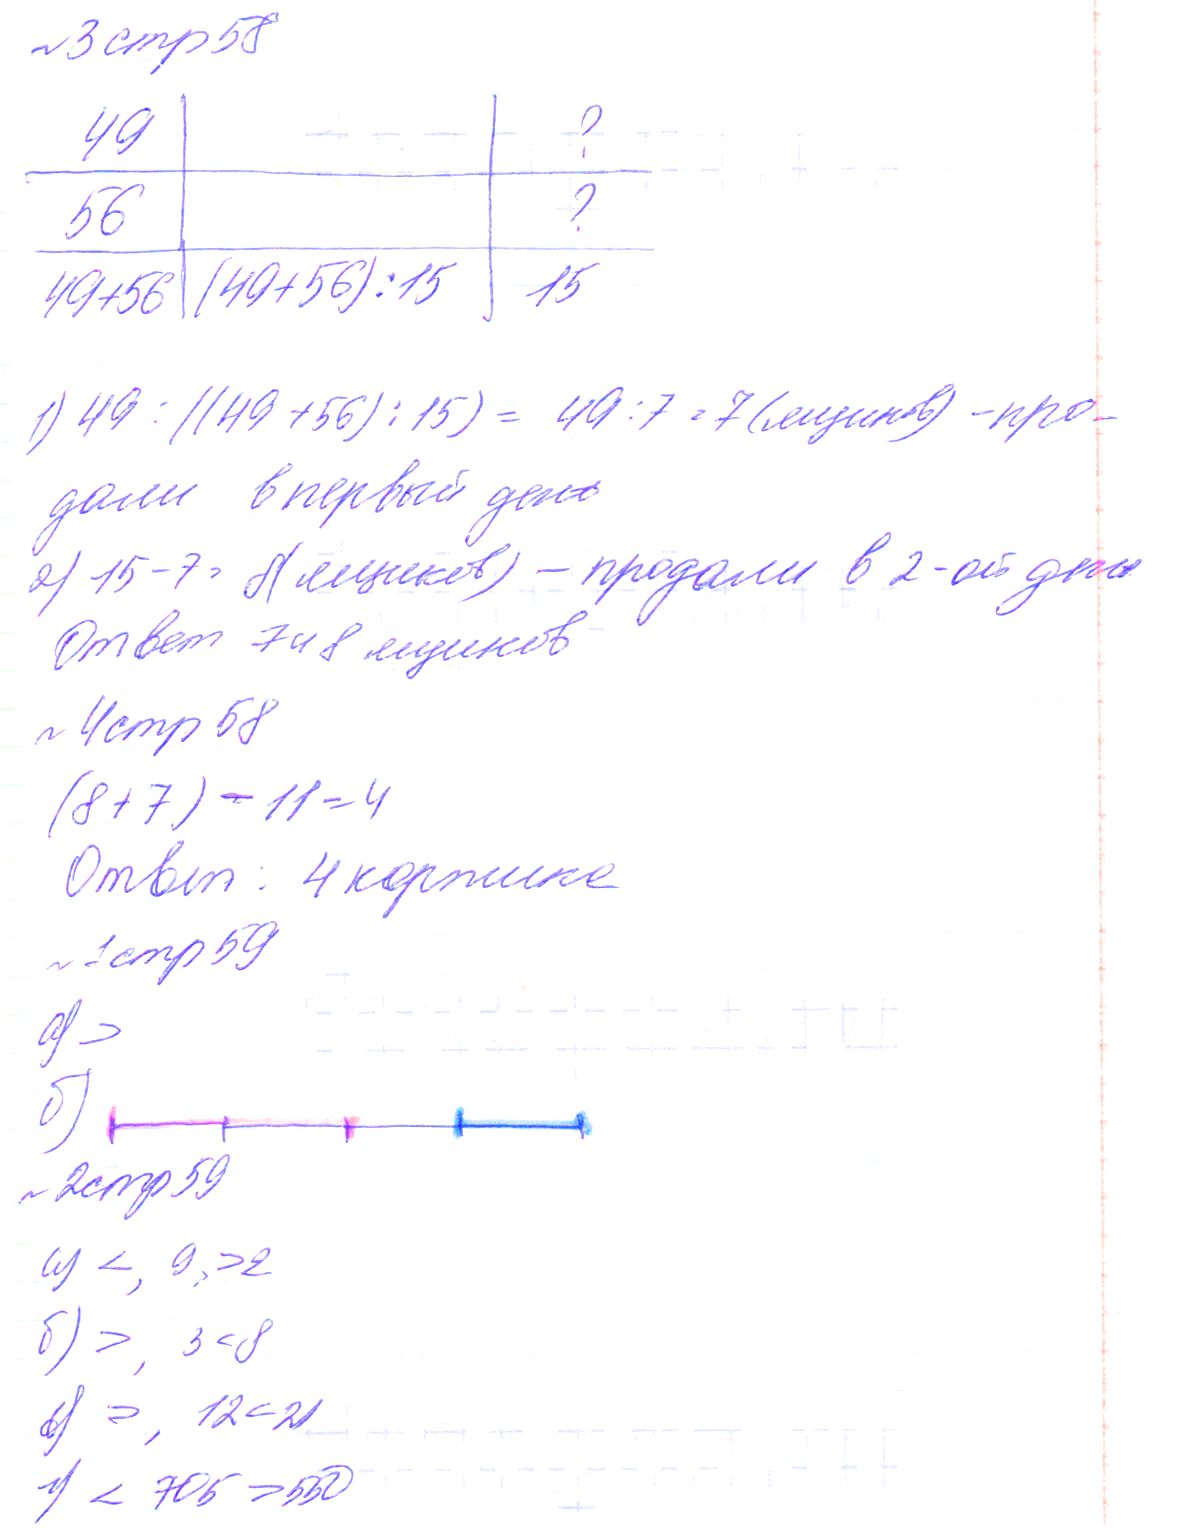 ~3 стр 58
49 ?
56 ?
49+56 (49+56):15 15
1) 49:((49+56):15) = 49:7=7(ящиков) -про-
дали в первый день
2) 15-7= 8(ящиков) - продали в 2-ой день
Ответ 7 и 8 ящиков
~4 стр 58
(8+7) - 11=4
Ответ: 4 коржика
~1 стр 59
а) >
б)
~2 стр 59
а) <, 9 >2
б) >, 3<8
в) >, 12<21
г) < 705 >550